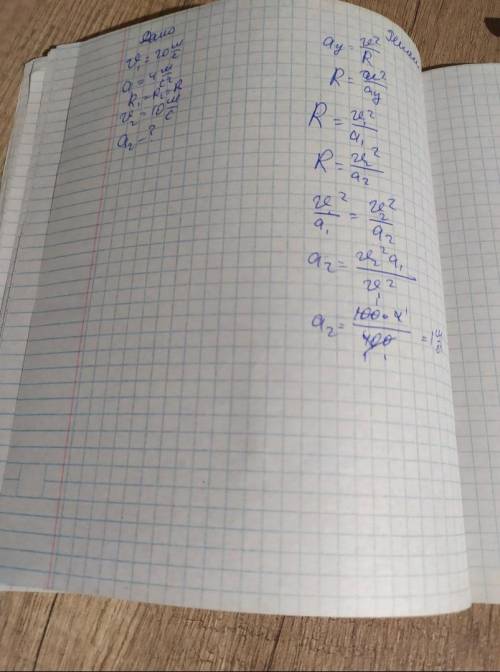 Дано
v₁ = 20 м/с
a₁ = 4 м/с²
R₁ = R₂ = R
v₂ = 10 м/с
a₂ - ?
aу = v²/R
R = v²/aу
R = v₁²/a₁
R = v₂²/a₂
v₁²/a₁ = v₂²/a₂
a₂ = v₂²a₁/v₁²
a₂ = 100·4/400 = 1 м/с²